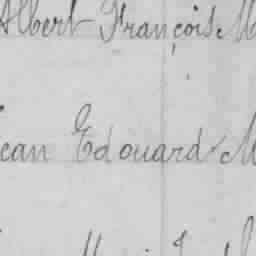 Albert François M
Jean Edouard M